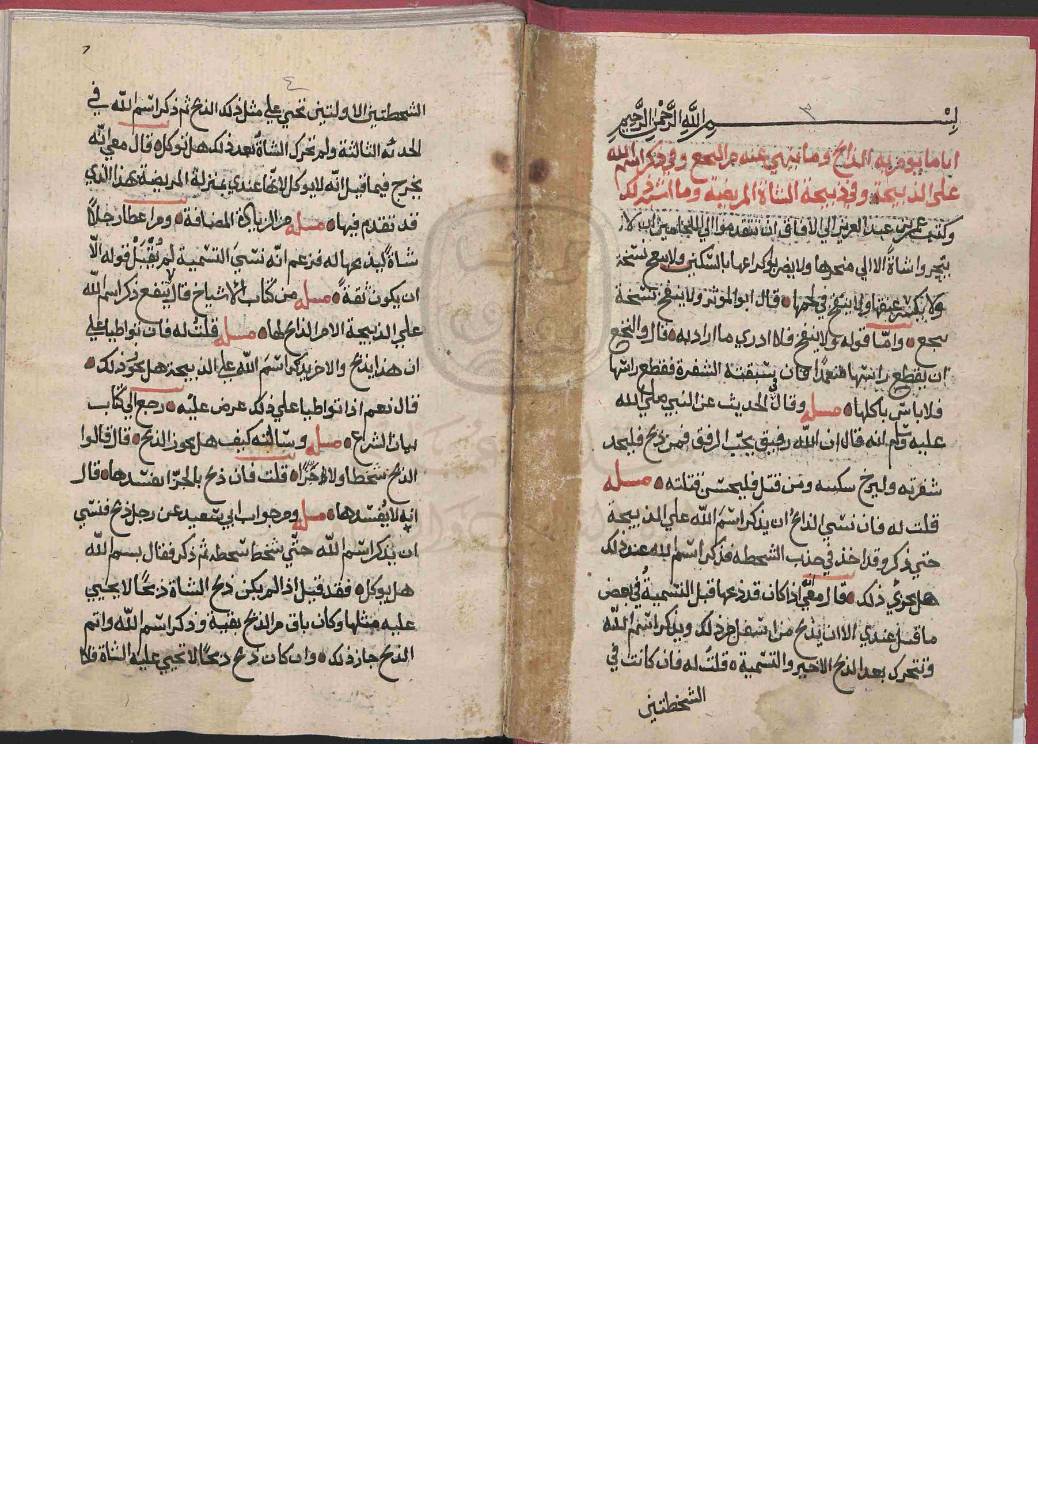 ٣
بسم الله الرحمن الرحيم
ما يومر به الذابح وما ينهى عنه من النخع وفي ذكر اسم الله
على الذبيحة وفي ذبيحة الشاة المريضة وما اشبه ذلك
وكتب عمر بن عبد العزيز الي الافاق ان تتقدموا الي اللحامين ان لا
يجروا شاة الا الي منحرها ولا يضربوا كراعها بالسكين ولا نسخة
ولا يكسر عنقها ولا ينفخ في لحمها قال ابو الموثر ولا ينفخ نسخة
واما قوله ولا ينفخ فلا ادري ما اراد به قال والنخع
ان يقطع راسها متعمدا فان سبقته الشفرة فقطع راسها
فلا باس باكلها مسله وقال في الحديث عن النبي صلى الله
عليه وسلم انه قال ان الله رفيق يحب الرفق فمن ذبح فليحد
شفرته وليرح ومن قتل فليحسن قتلته مسله
قلت له فان نسي الذابح ان يذكر اسم الله علي الذبيحة
حتي ذكر وقد اخذ في جذب الشحطه فذكر اسم الله عند ذلك
هل يجزي ذلك قال معي اذا كان قد ذبحها قبل التسمية في بعض
ما قيل عندي الا ان يذبح من اسفل من ذلك ويذكر اسم الله
وتتحرك بعد الذبح الاخير والتسمية قلت له فان كانت في
الشحطتين
٤
الشحطتين الاولتين تحيي علي مثل ذلك الذبح ثم ذكر اسم الله في
الثالثة ولم تحرك الشاة بعد ذلك هل توكل قال معي انه
يخرج فيما قيل انه لا يوكل لانها عندي بمنزلة المريضة بهذا الذي
قد تقدم فيها مسله من الزيادة المضافة ومن اعطا رجلا
شاة يذبحها له فزعم انه نسي التسمية لم يقبل قوله الا
ان يكون ثقة مسله من كتاب الاشياخ قال لا ينفع ذكر اسم الله
علي الذبيحة الا من الذابح لها مسله قلت له فان تواطيا علي
ان هذا يذبح والاخر يذكر اسم الله علي الذبيحة هل يجوز ذلك
قال نعم اذا تواطيا علي ذلك عرض عليه رجع الي كتاب
بيان الشرع مسله وسالته كيف هل يجوز الذبح قال قالوا
الذبح شحطا ولا جزا قلت فان ذبح بالجز ايفسدها قال
انه لا يفسدها مسله ومن جواب ابي سعيد عن رجل ذبح فنسي
ان يذكر اسم الله حتي شحط شحطه ثم ذكر فقال بسم الله
هل يوكل فقد قيل اذا لم يكن ذبح الشاة ذبحا لا تحيي
عليه مثلها وكان باق من الذبح بقية وذكر اسم الله واتم
الذبح جاز ذلك وان كان ذبح ذبحا لا تحيي عليه الشاة فلا